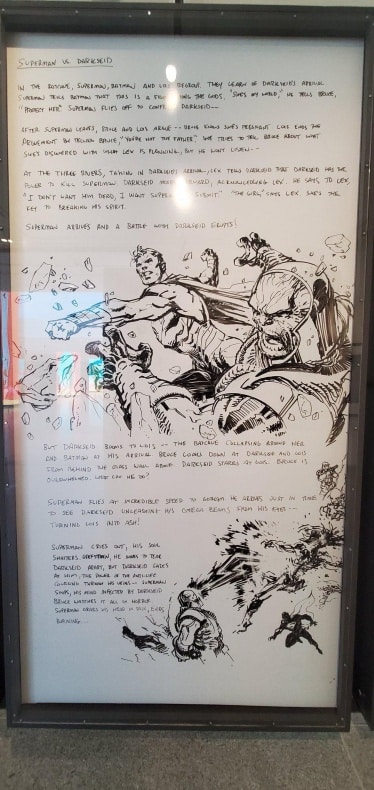 SUPERMAN VS. DARKSEID
IN THE BATCAVE, SUPERMAN, BATMAN AND LOIS REGROUP. THEY LEARN OF DARKSEID'S ARRIVAL
SUPERMAN TELLS BATMAN THAT THIS IS A FIGHT THE GODS. "SHE'S MY WORLD," HE TELLS BRUCE,
"PROTECT HER." SUPERMAN FLIES OFF TO CONFRONT DARKSEID---
AFTER SUPERMAN LEAVES, BRUCE AND LOIS ARGUE -- BRUCE KNOWS SHE'S PREGNANT. LOIS ENDS THE
ARGUMENT BY TELLING BRUCE, "YOU'RE NOT THE FATHER." SHE TRIES TO TELL BRUCE ABOUT WHAT
SHE'S DISCOVERED WITH WHAT LEX IS PLANNING, BUT HE WON'T LISTEN---
AT THE THREE RIVERS, TAKING IN DARKSEID'S ARRIVAL, LEX TELLS DARKSEID THAT DARKSEID HAS THE
POWER TO KILL SUPERMAN. DARKSEID FORWARD, ACKNOWLEDGING LEX. HE SAYS TO LEX,
"I DON'T WANT HIM DEAD, I WANT SUBMIT." "THE GIRL," SAYS LEX. SHE'S THE
KEY TO BREAKING HIS SPIRIT.
SUPERMAN ARRIVES AND A BATTLE WITH DARKSEID ERUPTS!
BUT DARKSEID BOOMS TO LOIS -- THE BATCAVE COLLAPSING AROUND HER
AND BATMAN AT HIS ARRIVAL. BRUCE LOOKS DOWN AT DARKSEID AND LOIS
FROM BEHIND THE GLASS WALL ABOVE. DARKSEID STANDS AT LOIS. BRUCE IS
OVERWHELMED. WHAT CAN HE DO?
SUPERMAN FLIES AT INCREDIBLE SPEED TO GOTHAM. HE ARRIVES JUST IN TIME
TO SEE DARKSEID UNLEASHING HIS OMEGA BEAMS FROM HIS EYES --
TURNING LOIS INTO ASH!
SUPERMAN CRIES OUT, HIS SOUL
SHATTERS. HE WANTS TO TEAR
DARKSEID APART, BUT DARKSEID GAZES
AT HIM, THE POWER OF THE ANTI-LIFE
COURSING THROUGH HIS VEINS -- SUPERMAN
STOPS, HIS MIND INFECTED BY DARKSEID
BRUCE WATCHES IT ALL IN HORROR.
SUPERMAN RAISES HIS HEAD IN PAIN, EYES
BURNING...